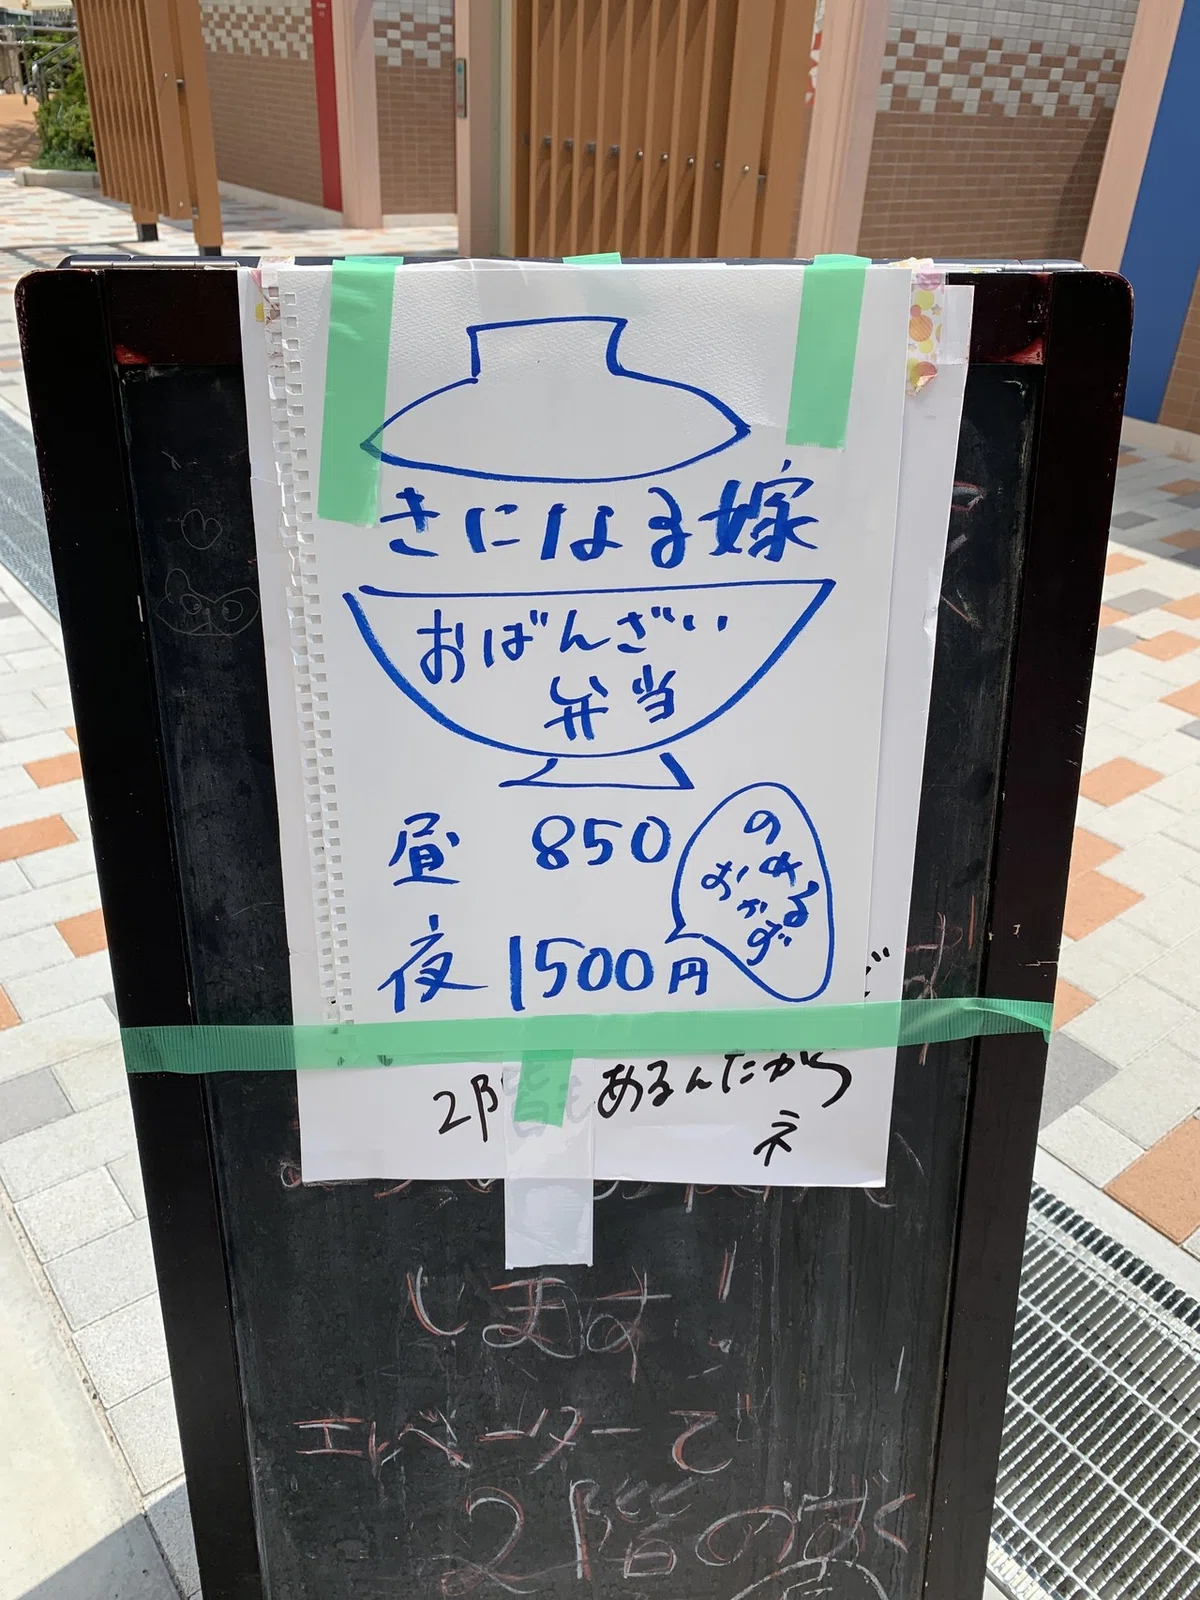 きになる嫁
おばんざい
弁当
昼 850
のめる
おかず
夜 1500円
2階も あるんだから
ネ
します!
エレベーターで
2階の